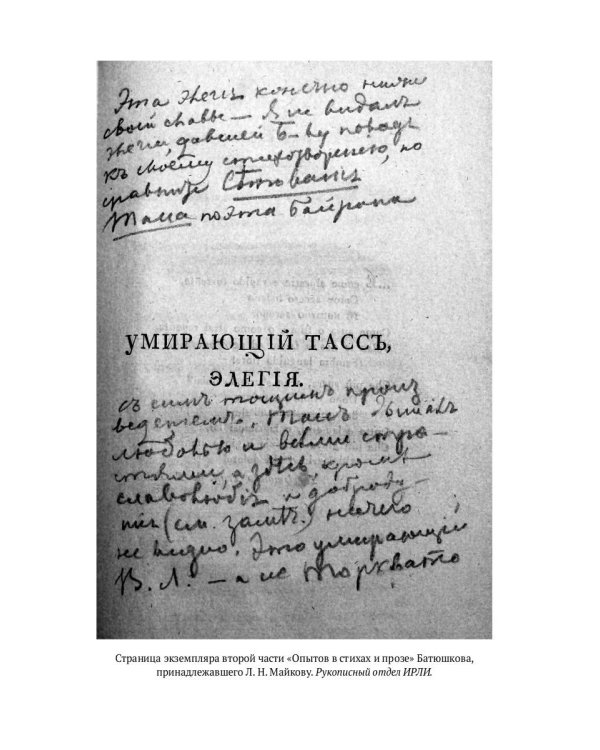 Эта элегія конечно ниже
своей славы — Я не видалъ
элегіи, давшей Б—ву поводъ
къ своему стихотворенію, но
сравните Сѣтованія
Тасса поэта Байрона
УМИРАЮЩІЙ ТАССЪ,
ЭЛЕГІЯ.
съ симъ тощимъ произ
веденіемъ. Тассъ дышалъ
любовью и всѣми стра-
стями, а здѣсь, кромѣ
славолюбія и доброду-
шія (см. замѣч.) ничего
не видно. Это умирающій
В. Л. — а не Торквато
Страница экземпляра второй части «Опытов в стихах и прозе» Батюшкова,
принадлежавшего Л. Н. Майкову. Рукописный отдел ИРЛИ.